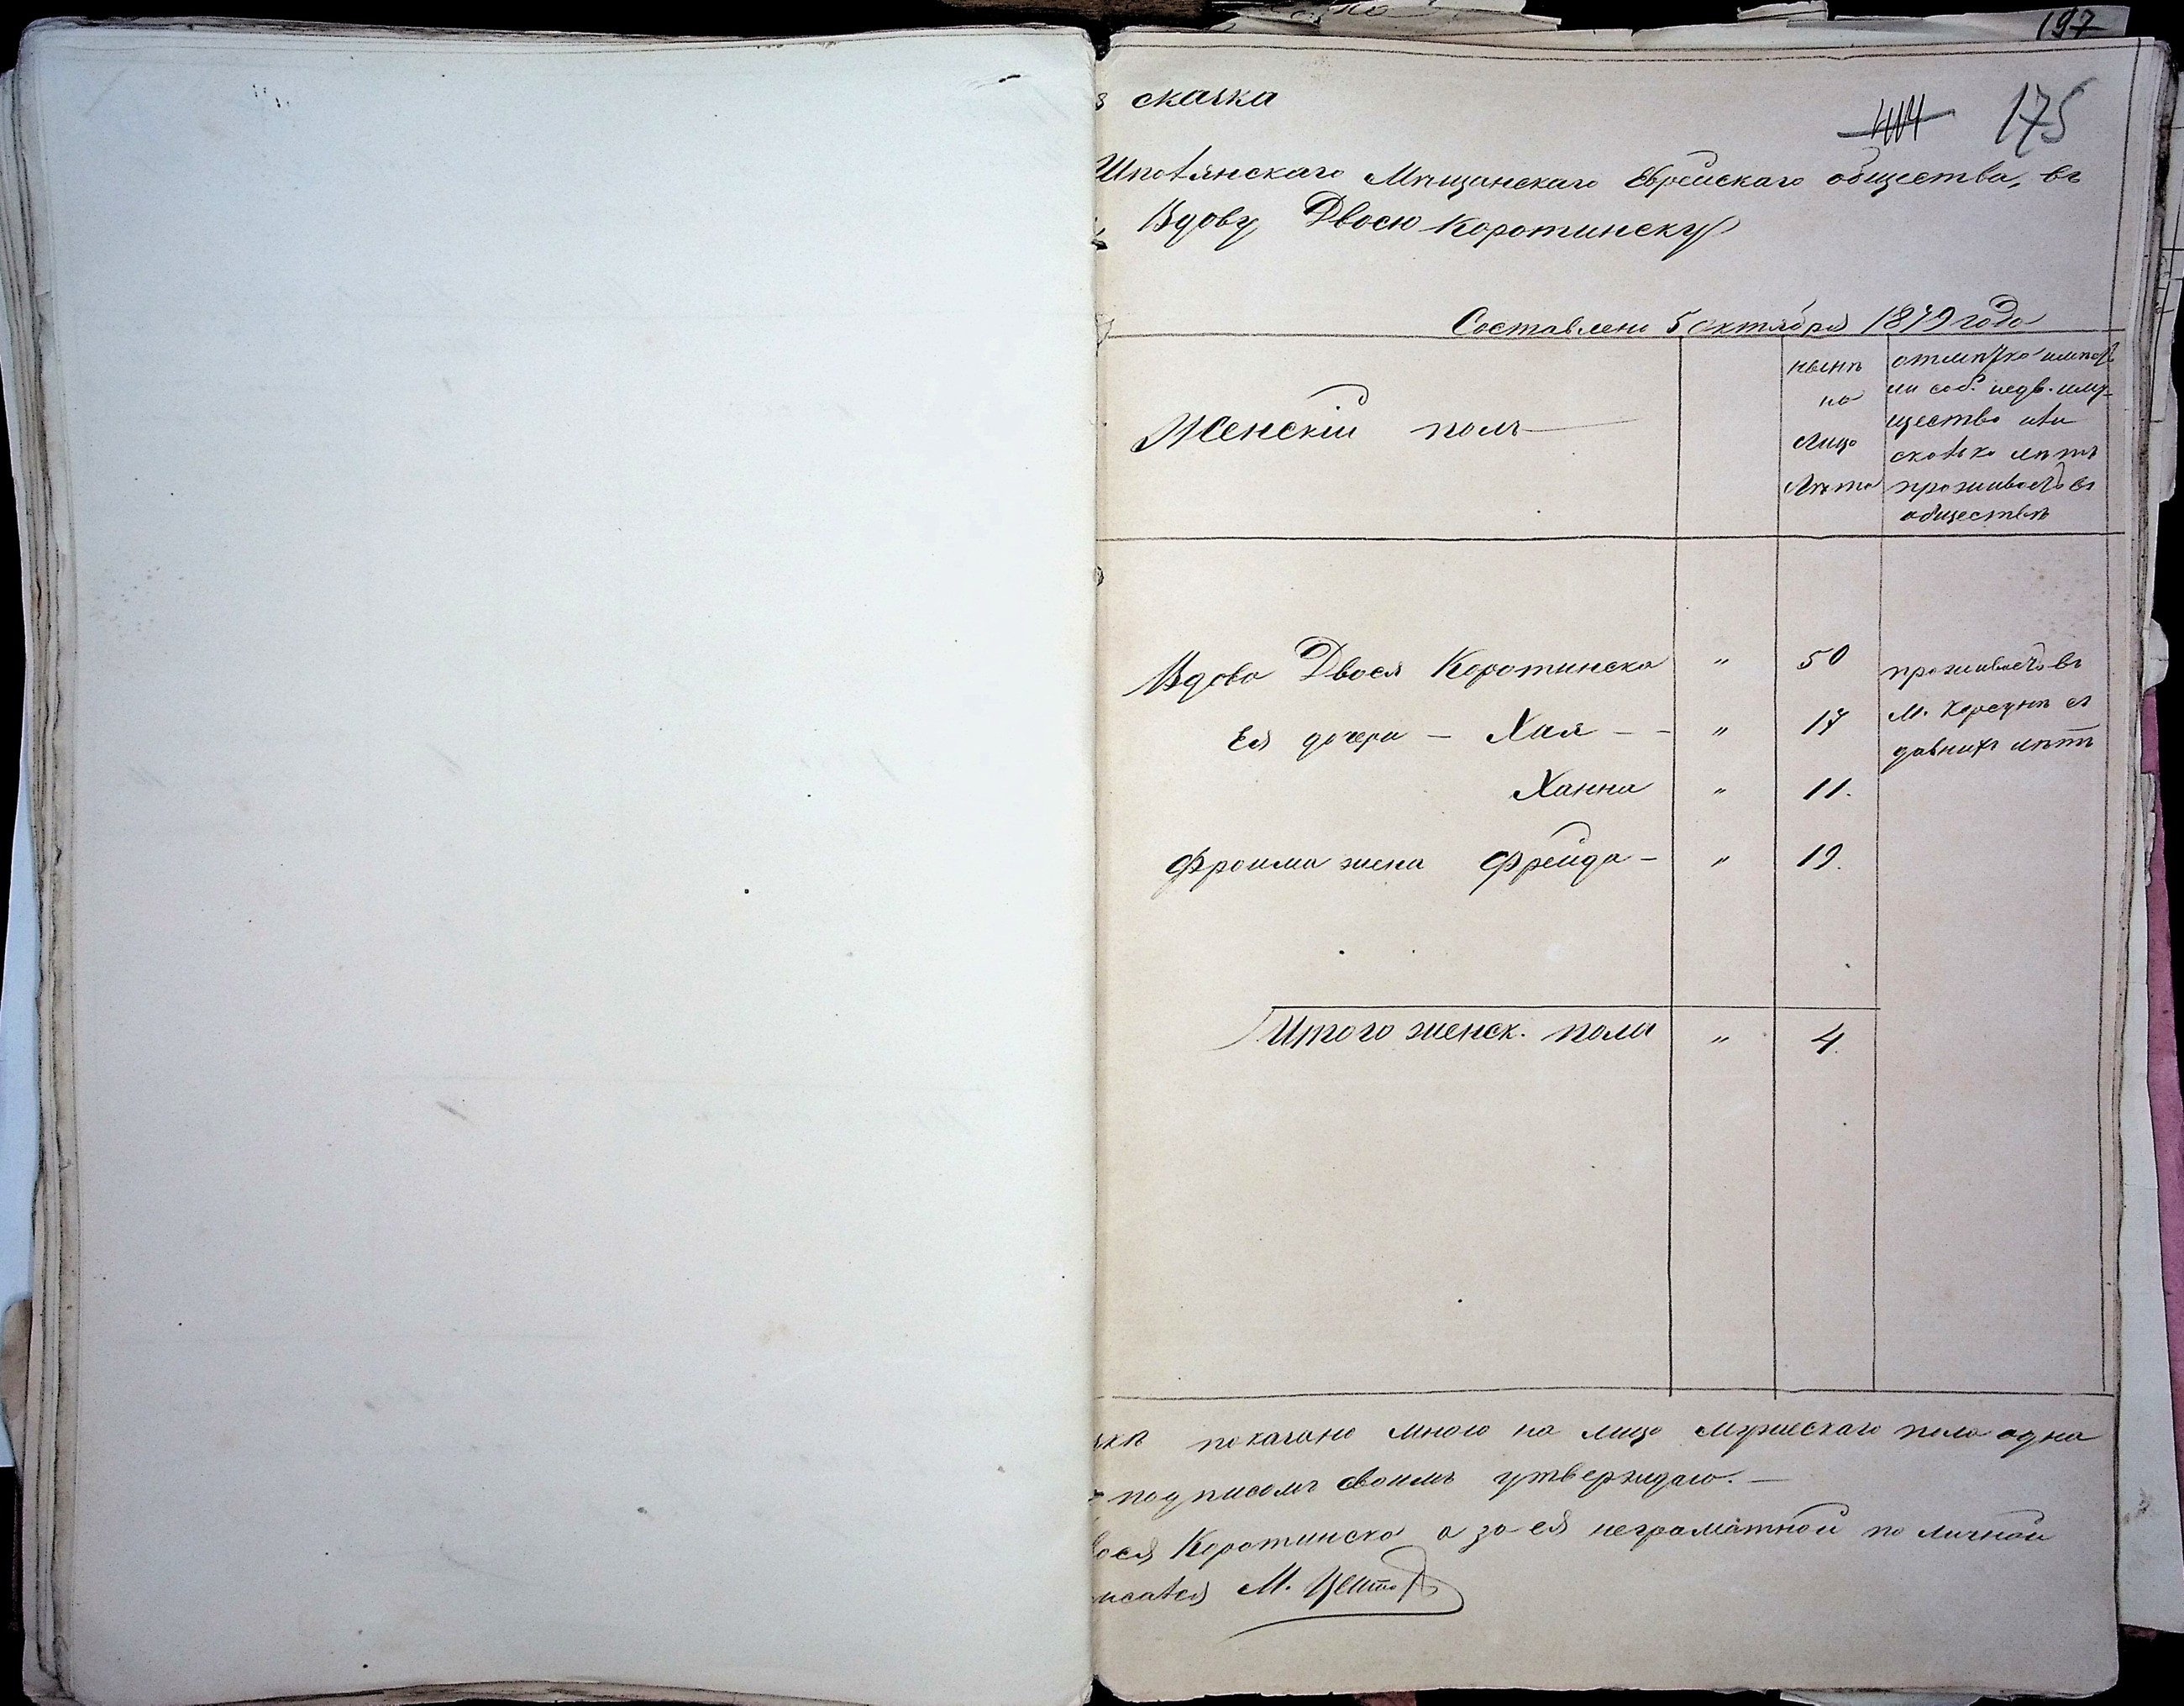 197
175
сказка
Шполянскаго Мѣщанскаго Еврейскаго общества, въ
Вдову Двосю Коротинску
Составлена 5 октября 1879 года
Женскій полъ
нынѣ
на
лицо
Лѣта
отмѣтка имѣетъ
ли соб. недв. иму-
щество или
сколько лѣтъ
проживаетъ въ
обществѣ
Вдова Двося Коротинска " 50
проживаетъ въ
Ея дочери - Хая - - " 17
М. Корсунѣ съ
давнихъ лѣтъ
Ханна " 11.
Фроима жена Фрейда - " 19.
Итого женск. пола " 4.
показано мною на лицо мужескаго пола одна
подписомъ своимъ утверждаю. -
Коротинска а за ея неграматной по личной
М.